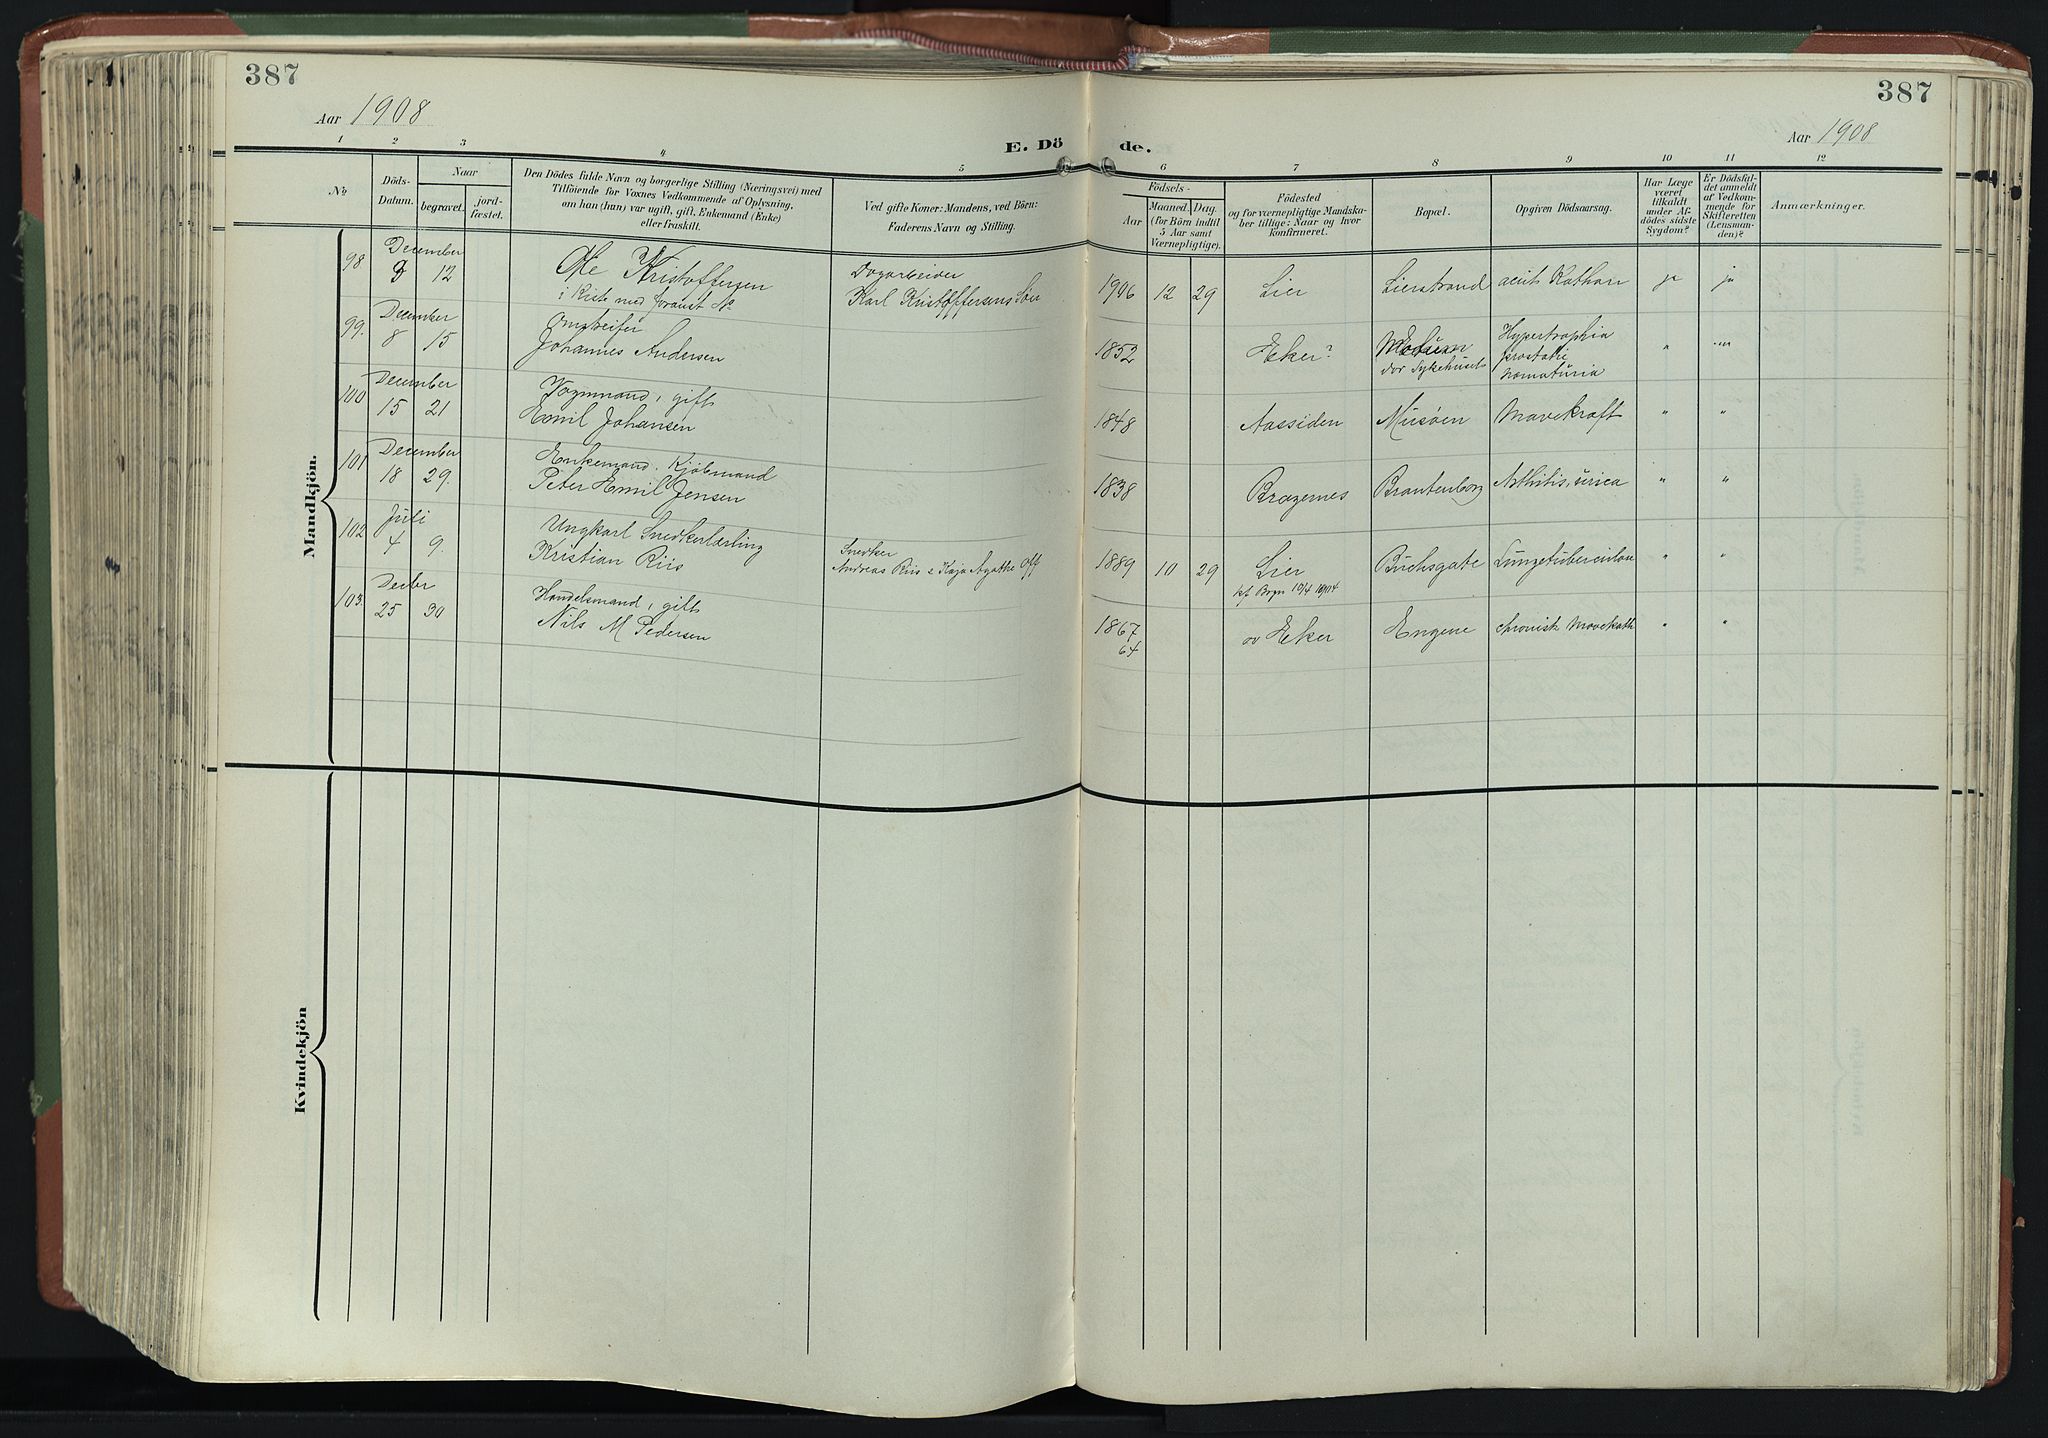 387
387
Aar 1908
E. Dö de.
Aar 1908
1 2 3 4 5 6 7 8 9 10 11 12
No
Döds-
Datum.
Naar
begravet.
jord-
fæstet.
Den Dödes fulde Navn og borgerlige Stilling (Næringsvei) med
Tilföiende for Voxnes Vedkommende af Oplysning,
om han (hun) var ugift, gift, Enkemand (Enke)
eller fraskilt.
Ved gifte Koner: Mandens, ved Börn:
Faderens Navn og Stilling.
Födsels-
Aar
Maaned.
Dag.
(for Börn indtil
5 Aar samt
Værnepligtige).
Födested
og for værnepligtige Mandska-
ber tillige: Naar og hvor
konfirmeret.
Bopæl.
Opgiven Dödsaarsag.
Har Læge
været
tilkaldt
under Af-
dödes sidste
Sygdom?
Er Dödsfal-
det anmeldt
af Vedkom-
mende for
Skifteretten
(Lensman-
den)?
Anmærkninger.
Mandkjön.
98 December
8 12
Ole Kristoffersen
i Kiste med foranst No
Dagarbeider
Karl Kristoffersens Søn
1906 12 29 Lier Lierstrand acut Kathar ja ja
99. December
8 15
Omstreifer
Johannes Andersen
1852 Eker? Modum
dør Sykehuset
Hypertrophia
prostatæ
" "
100 December
15 21
Vognmand, gift
Emil Johansen
1848 Aassiden Musøen Mavekræft " "
101 December
18 29.
Enkemand. Kjøbmand
Peter Emil Jensen
1838 Bragernes Brantenborg Arthritis, urica " "
102 Juli
4 9.
Ungkarl Snedkerlærling
Kristian Riis
Snedker
Andreas Riis & Kaja Agathe Off
1889 10 29 Lier
kf Bragn
Buchsgate " "
103. Decbr
25 30
Handelsmand, gift
Nils M Pedersen
1867
64
øv Eker Engene chronisk Mavekath " "
Kvindekjön